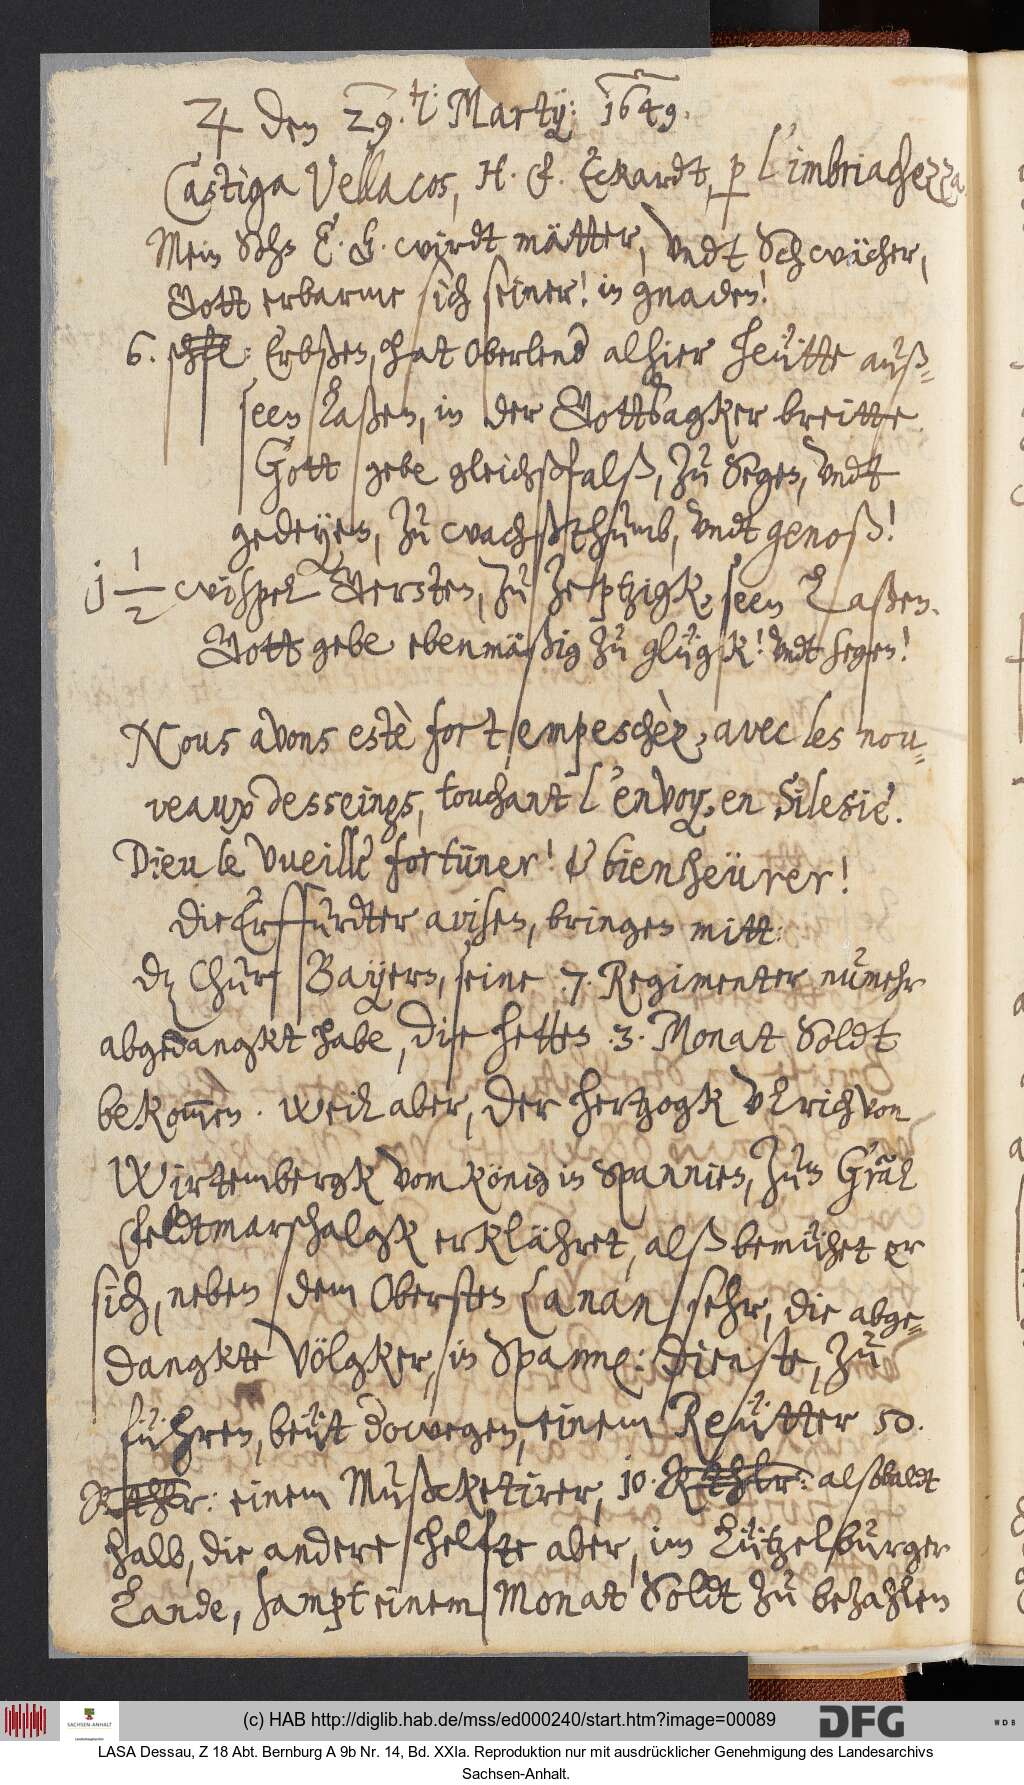 ♃ den 29.ten: Martij: 1649.
Castiga Vellacos, H. E. Eckardt, p l'imbriachezza
Mein Sohn E. G. wirdt mätter, undt Schwächer,
Gott erbarme sich seiner! in gnaden!
6. schfl: Erbßen, hat Oberlend alhier heütte auß-
seen laßen, in der Gottsagker breitte.
Gott gebe gleichßfalß, zu Segen, undt
gedeyen, zu wachßthumb, undt genoß!
j ½ wispel Gersten, zu Zeptzigk, seen laßen.
Gott gebe ebenmäßig zu glügk! undt segen!
Nous avons estè fort empeschèz, avec les nou-
veaux desseings, touchant l'envoy, en Silesie.
Dieu le vueille fortüner! & bienheürer!
Die Erffurdter avisen, bringen mitt:
dz Churf Bayern, seine .7. Regimenter numehr
abgedangkt habe, die hetten .3. Monat Soldt
bekom̄en. Weil aber, der Hertzogk Ulrich von
Wirtembergk vom König in Spannien, zum Gnāl
Feldtmarschalgk erklähret, alß bemühet er
sich, neben dem Obersten Canan sehr, die abge-
dangkte Völgker, in Spann: dienste, zu
führen, beüt dowegen, einem Reütter 50.
Rthlr: einem Mußcketirer, 10. Rthlr: alßbaldt
halb, die andere helfte aber, im Lützelburger
Lande, sampt einem Monat Soldt zu bezahlen
(c) HAB http://diglib.hab.de/mss/ed000240/start.htm?image=00089
SACHSEN-ANHALT
DFG
WDB
LASA Dessau, Z 18 Abt. Bernburg A 9b Nr. 14, Bd. XXIa. Reproduktion nur mit ausdrücklicher Genehmigung des Landesarchivs
Sachsen-Anhalt.